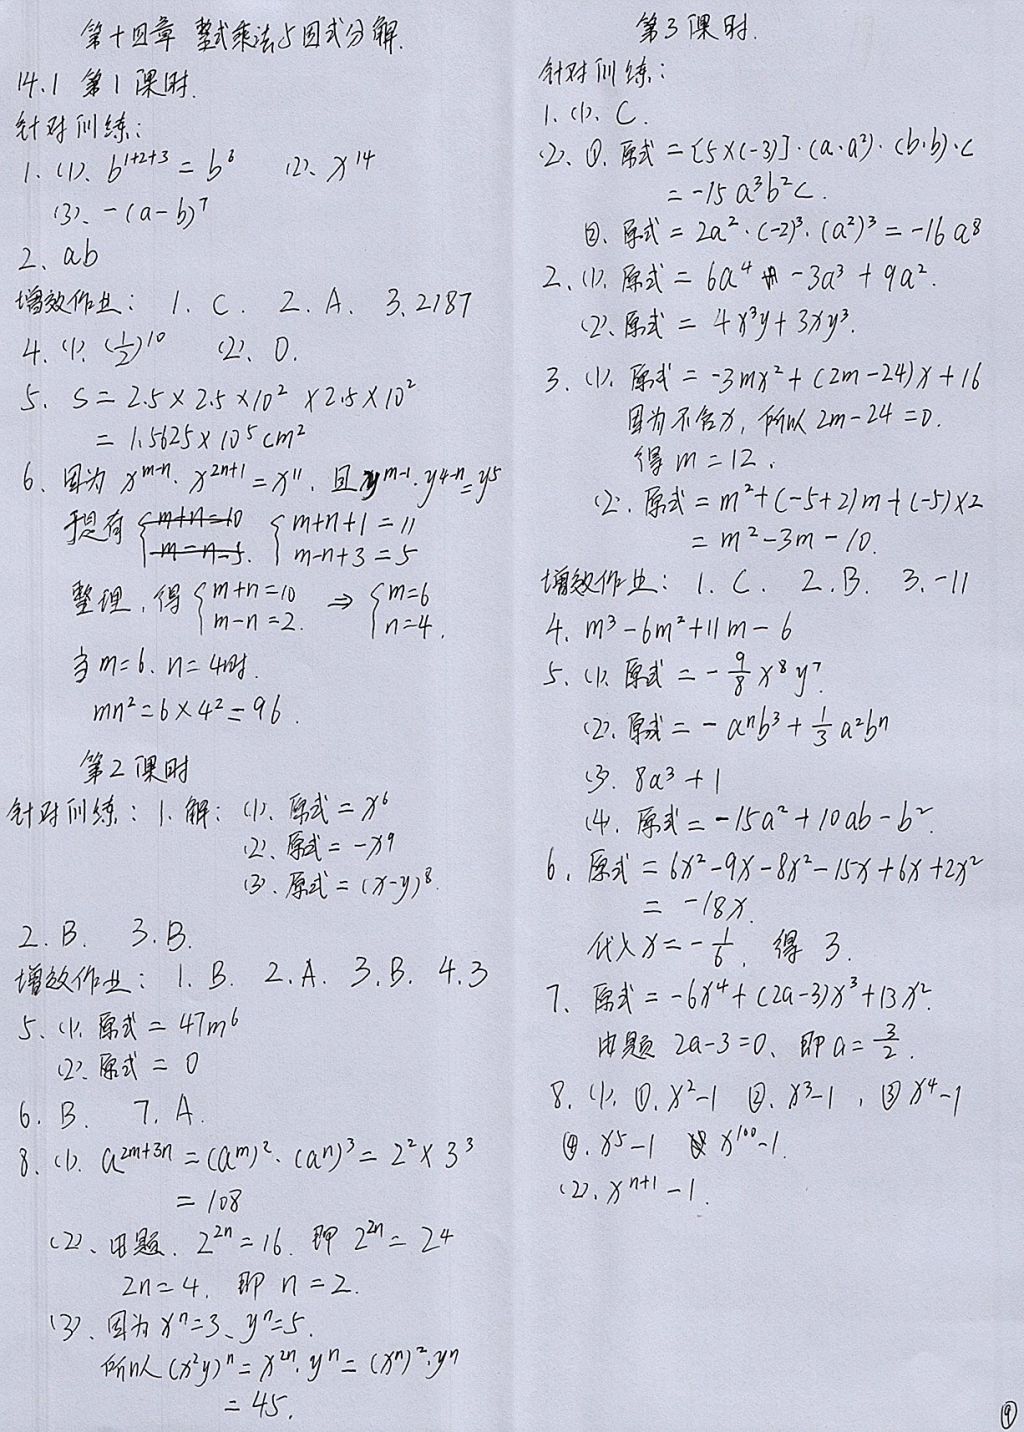 第十四章 整式乘法与因式分解.
14.1 第1课时.
针对训练:
1. (1). b^{1+2+3} = b^6 (2). x^{14}
(3). -(a-b)^7
2、ab
增效作业: 1. C. 2. A. 3. 2187
4. (1). (1/2)^{10} (2). 0.
5. S = 2.5 × 2.5 × 10^2 × 2.5 × 10^2
= 1.5625 × 10^5 cm^2
6、因为 x^{m-n}·x^{2n+1} = x^{11}, 且 y^{m-1}·y^{4-n} = y^5
于是有 { m+n=10 { m+n+1 = 11
m-n=5. m-n+3 = 5
整理, 得 { m+n=10 ⇒ { m=6
m-n=2. n=4.
当 m=6、n=4时.
mn^2 = 6×4^2 = 96.
第2课时
针对训练: 1. 解: (1). 原式 = x^6
(2). 原式 = -x^9
(3). 原式 = (x-y)^8.
2. B. 3. B.
增效作业: 1. B. 2. A. 3. B. 4. 3
5. (1). 原式 = 47m^6
(2). 原式 = 0
6. B. 7. A.
8. (1). a^{2m+3n} = (a^m)^2·(a^n)^3 = 2^2 × 3^3
= 108
(2)、由题. 2^{2n} = 16. 即 2^{2n} = 2^4
2n = 4. 即 n = 2.
(3)、因为 x^n=3、y^n=5.
所以 (x^2y)^n = x^{2n}·y^n = (x^n)^2·y^n
= 45.
第3课时.
针对训练:
1. (1). C.
(2). ①. 原式 = [5×(-3)]·(a·a^2)·(b·b)·c
= -15a^3b^2c.
②. 原式 = 2a^2·(-2)^3·(a^2)^3 = -16a^8
2. (1). 原式 = 6a^4 - 3a^3 + 9a^2.
(2). 原式 = 4x^3y + 3xy^3.
3. (1). 原式 = -3mx^2 + (2m-24)x + 16
因为不含x, 所以 2m-24 = 0.
得 m = 12.
(2). 原式 = m^2 + (-5+2)m + (-5)×2
= m^2 - 3m - 10.
增效作业: 1. C. 2. B. 3. -11
4. m^3 - 6m^2 + 11m - 6
5. (1). 原式 = -9/8 x^8y^7.
(2). 原式 = -a^nb^3 + 1/3 a^2b^n
(3). 8a^3 + 1
(4). 原式 = -15a^2 + 10ab - b^2.
6. 原式 = 6x^2 - 9x - 8x^2 - 15x + 6x + 2x^2
= -18x.
代入 x = -1/6, 得 3.
7. 原式 = -6x^4 + (2a-3)x^3 + 13x^2.
由题 2a-3=0、即 a = 3/2.
8. (1). ①. x^2-1 ②. x^3-1, ③ x^4-1
④. x^5-1 x^{100}-1.
(2). x^{n+1} - 1.
⑨